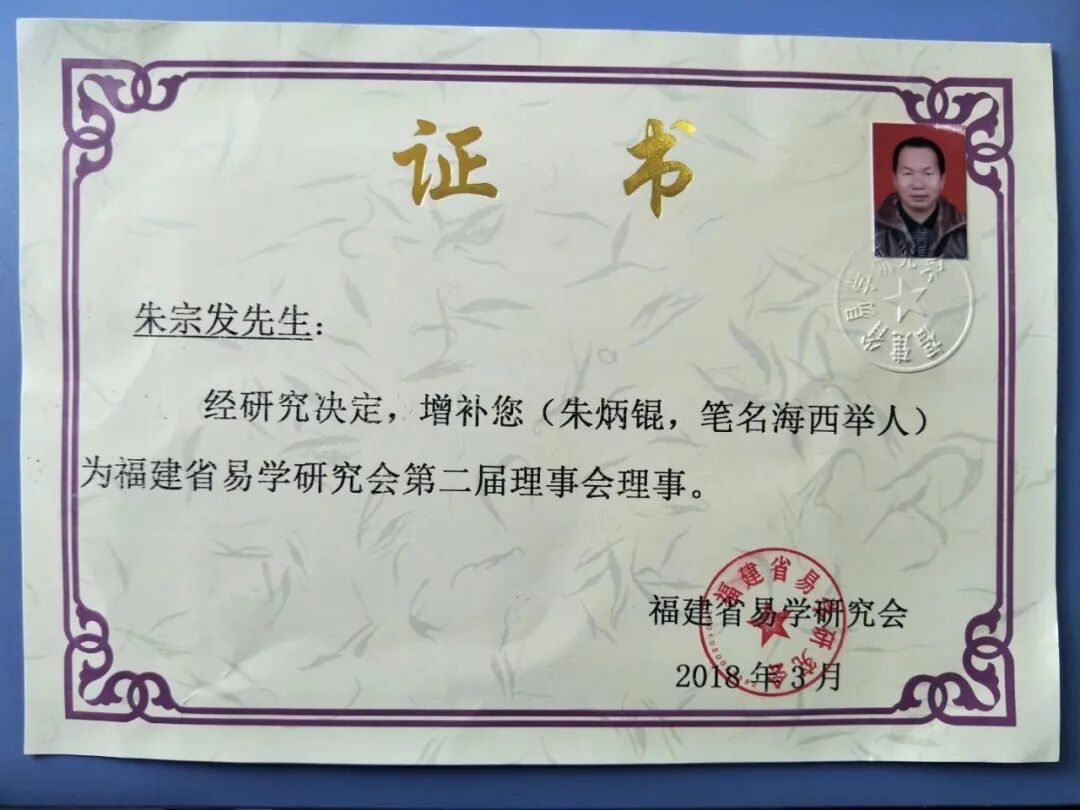 证 书
朱宗发先生：
经研究决定，增补您（朱炳锟，笔名海西举人）
为福建省易学研究会第二届理事会理事。
福建省易学研究会
2018年3月
福建省易学研究会
福建省易学研究会